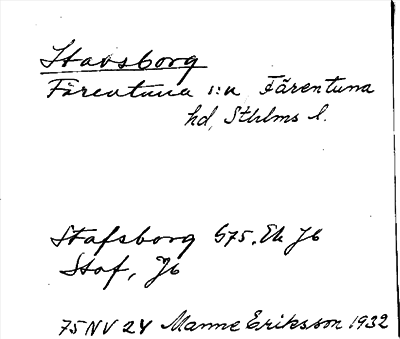 Stavsborg
Färentuna s:n Färentuna
hd, Sthlms l.
Stafsborg G75. Ek Jb
Staf, Jb
75 NV 24 Manne Eriksson 1932